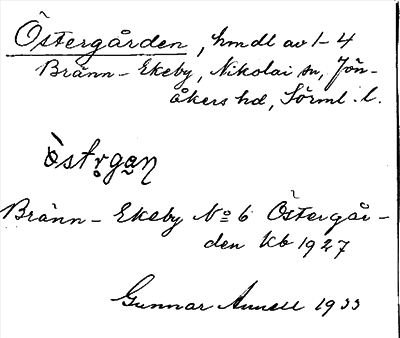 Östergården, hmdl av 1-4
Bränn-Ekeby, Nikolai sn, Jön-
åkers hd, Sörml. l.
òstr̥ga̠ṇ
Bränn-Ekeby No 6 Östergår-
den Kb 1927
Gunnar Annell 1933